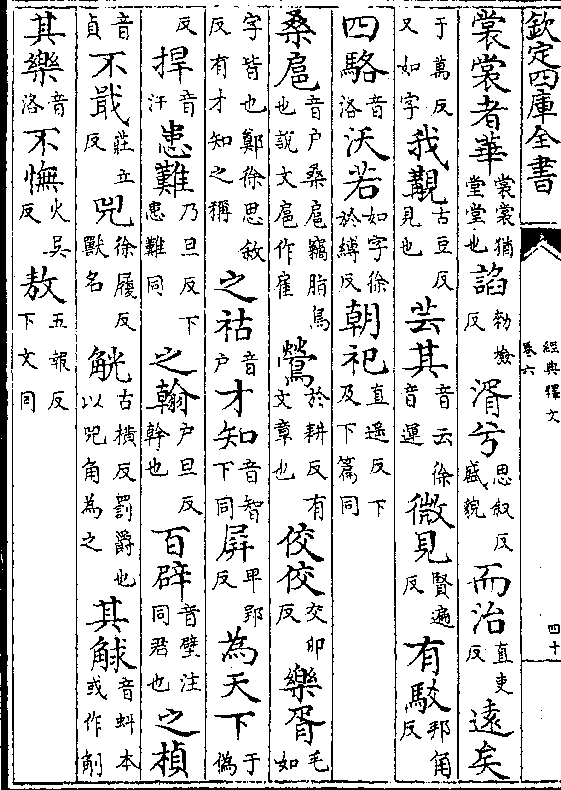 欽定四庫全書
經典釋文
卷六
四十
裳裳者華裳裳猶堂堂也諂勑檢反湑兮思叙反盛貌而治直吏反遠矣
于萬反又如字我覯古豆反見也芸其音云徐音運微見賢遍反有駮邦角反
四駱音洛沃若如字徐於縛反朝祀直遥反下及下篇同
桑扈音户桑扈竊脂鳥也説文扈作雇鶯於耕反有文章也佼佼交卯反樂胥毛如
字皆也鄭徐思敘反有才知之稱之祜音户才知音智下同屏卑郢反為天下于偽
反捍音汗患難乃旦反下患難同之翰户旦反幹也百辟音璧注同君也之楨
音貞不戢莊立反兕徐履反獸名觥古橫反罰爵也以兕角為之其觩音虯本或作觓
其樂音洛不憮火吴反敖五報反下文同